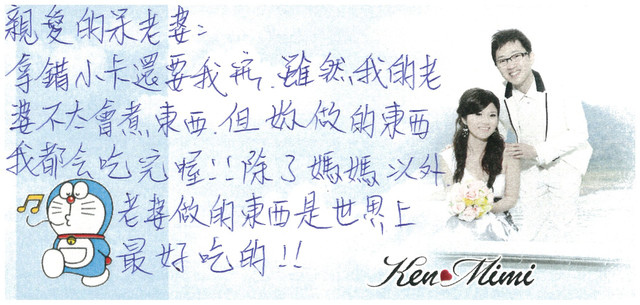 親愛的呆老婆：
拿錯小卡還要我寫.雖然我的老
婆不太會煮東西.但妳做的東西
我都会吃完喔!!除了媽媽以外
老婆做的東西是世界上
最好吃的!!
Ken Mimi